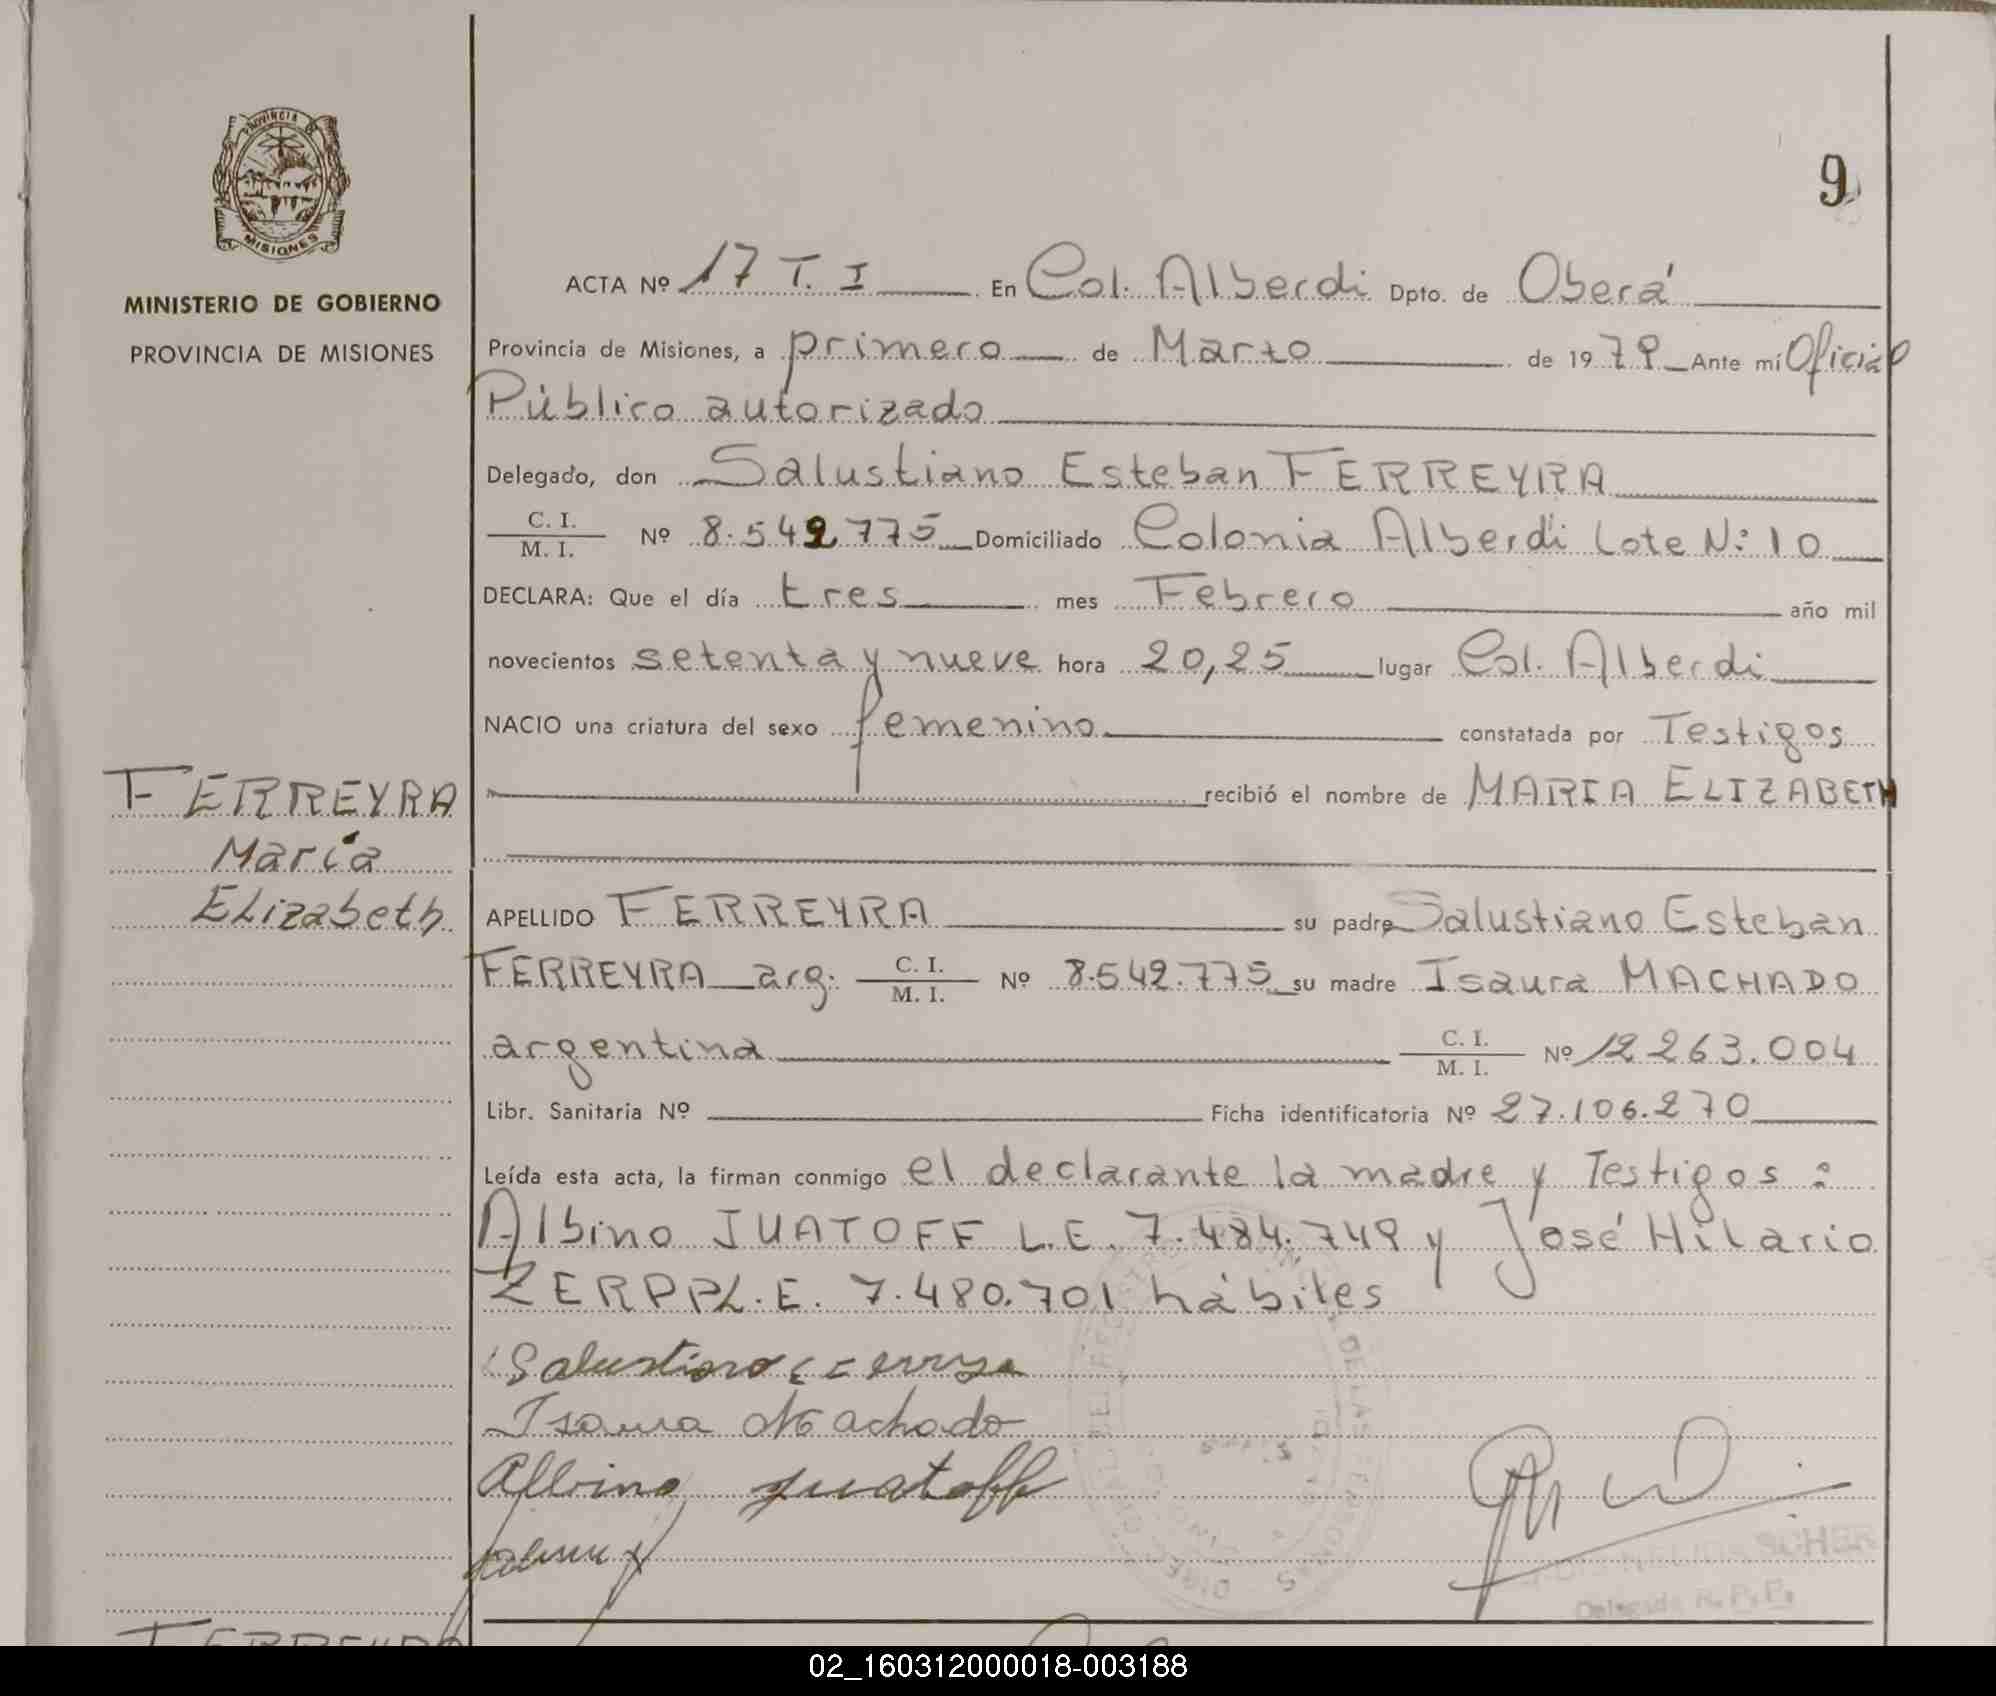 PROVINCIA DE
MISIONES
MINISTERIO DE GOBIERNO
PROVINCIA DE MISIONES
9
ACTA Nº 17 T. I En Col. Alberdi Dpto. de Oberá
Provincia de Misiones, a primero de Marzo de 1979 Ante mí Oficial
Público autorizado
Delegado, don Salustiano Esteban FERREYRA
C. I.
M. I. Nº 8.542.775 Domiciliado Colonia Alberdi Lote N: 10
DECLARA: Que el día tres mes Febrero año mil
novecientos setenta y nueve hora 20,25 lugar Col. Alberdi
NACIO una criatura del sexo femenino constatada por Testigos
recibió el nombre de MARIA ELIZABETH
FERREYRA
María
Elizabeth
APELLIDO FERREYRA su padre Salustiano Esteban
FERREYRA arg. C. I.
M. I. Nº 8.542.775 su madre Isaura MACHADO
argentina C. I.
M. I. Nº 12.263.004
Libr. Sanitaria Nº Ficha identificatoria Nº 27.106.270
Leída esta acta, la firman conmigo el declarante la madre y Testigos :
Albino JUATOFF L.E. 7.484.749 y José Hilario
L.E. 7.480.701 hábiles
Salustiano
Isaura Machado
Albino Juatoff
SCHER
Delegada R.P.P.
FERREYRA
02_160312000018-003188